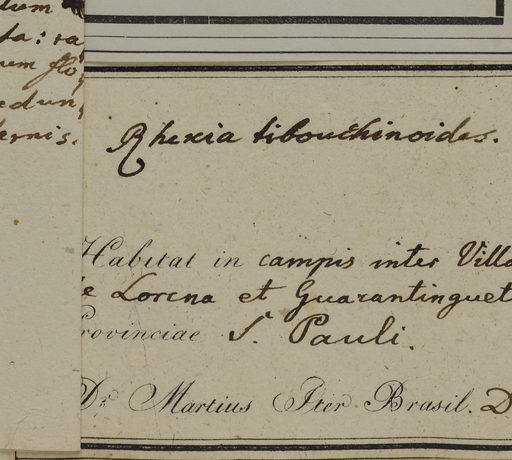 dum
ta: ra
um flo
edun
ernis.
Rhexia tibouchinoides.
Habitat in campis inter Villa
de Lorena et Guarantinguet
Provinciae S. Pauli.
Dr Martius Iter Brasil. D